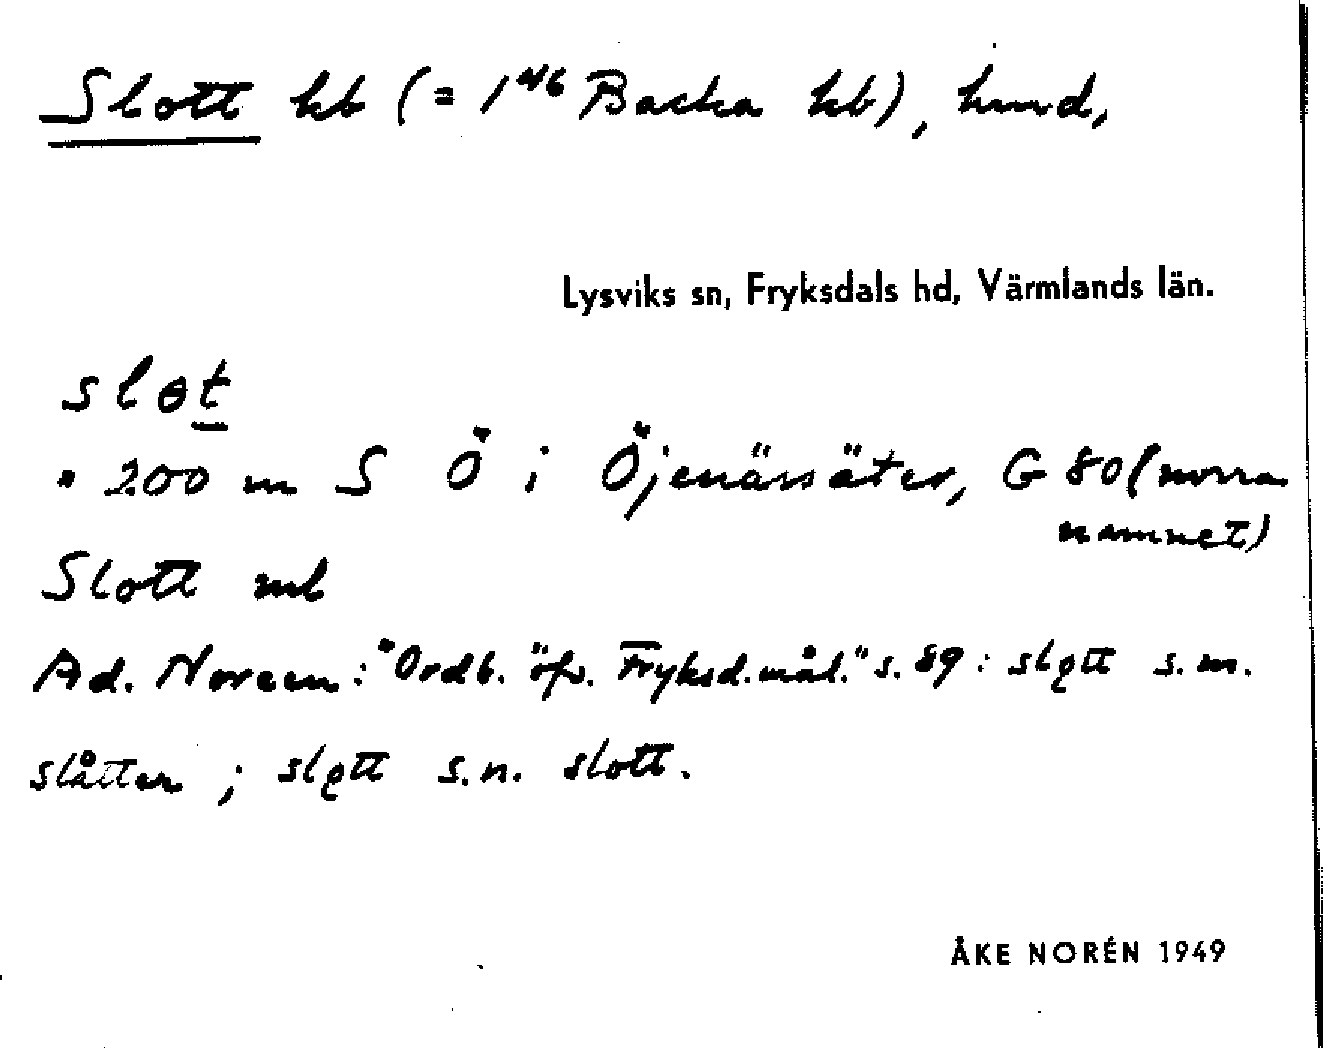 Slott hb (= 1⁴⁶ Backa hb), hmd,
Lysviks sn, Fryksdals hd, Värmlands län.
slɵt
• 200 m S Ö i Öjenässäter, G 80 (norra
namnet)
Slott mb
Ad. Noreen: "Ordb. öfv. Fryksd.mål." s. 89: slọtt s. m.
slåtter; slọtt s.n. slott.
ÅKE NORÉN 1949